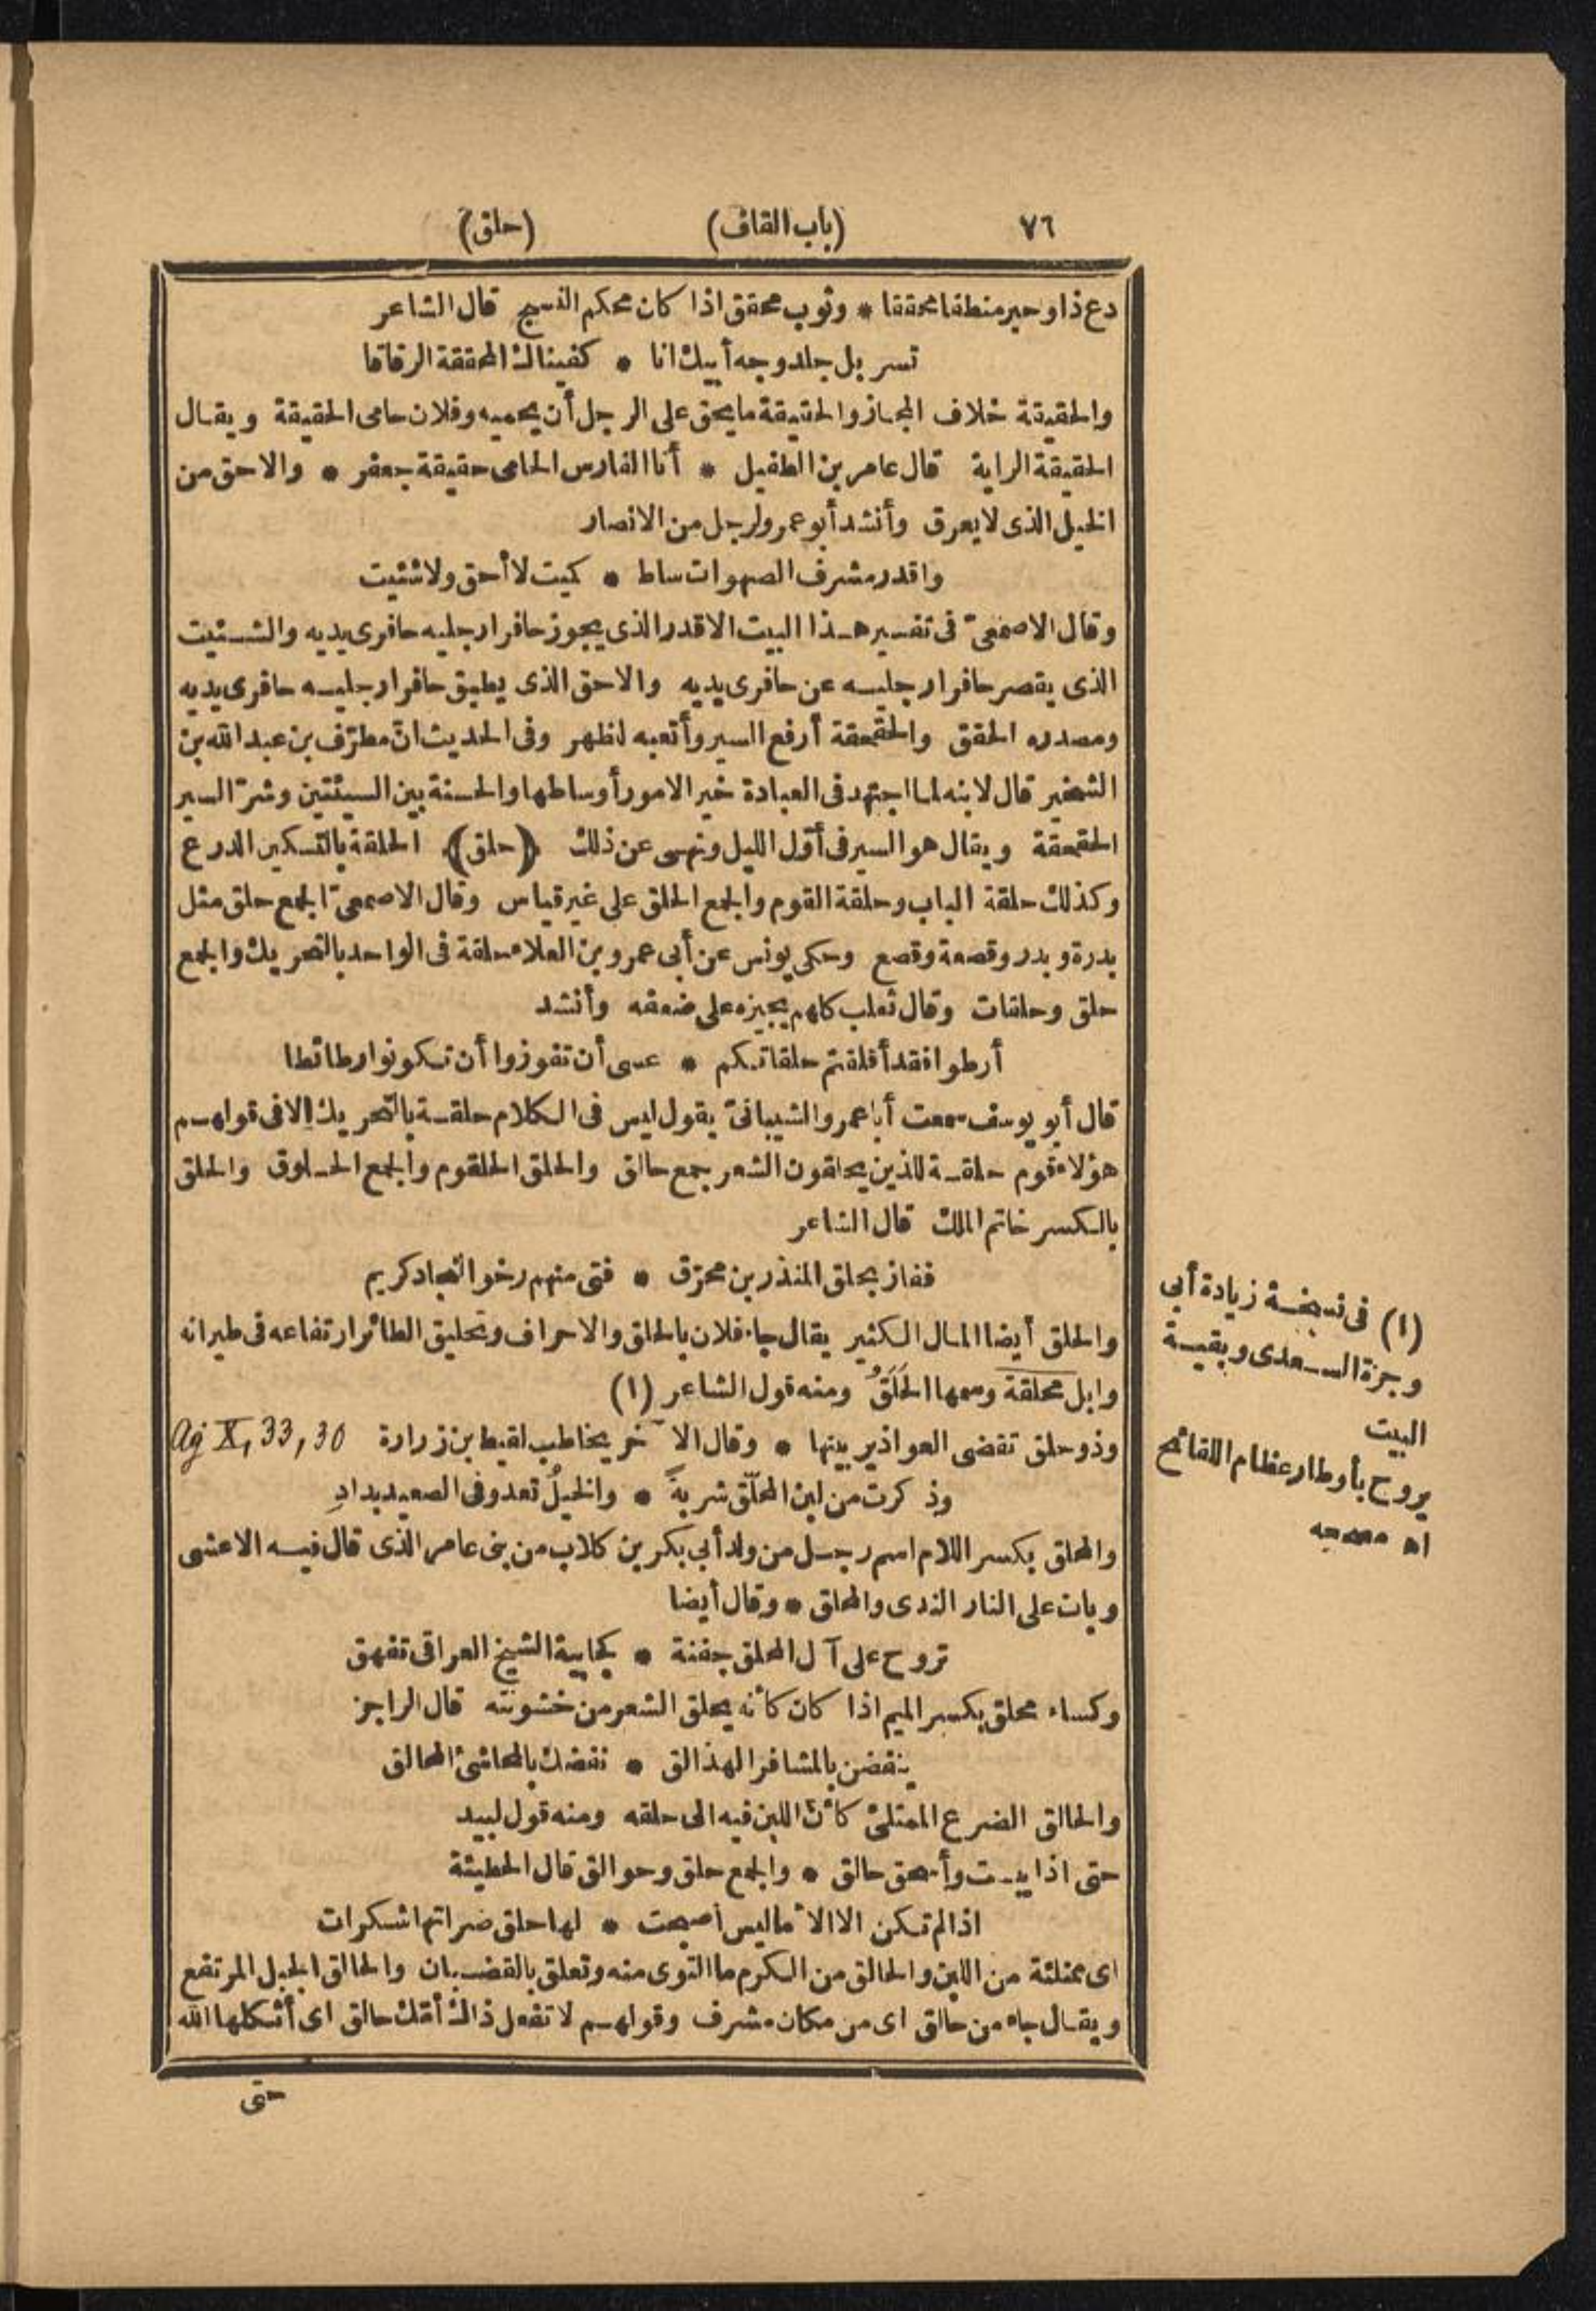 ٧٦ (باب القاف) (حلق)
دع ذا وحبر منطقا محققا * وثوب محقق اذا كان محكم النسج قال الشاعر
تسربل جلد وجه أبيك انا * كفيناك المحققة الرقاقا
والحقيقة خلاف المجاز والحقيقة ما يحق على الرجل أن يحميه وفلان حامى الحقيقة ويقال
الحقيقة الراية قال عامر بن الطفيل * أنا الفارس الحامى حقيقة جعفر * والاحق من
الخيل الذى لا يعرق وأنشد أبو عمرو لرجل من الانصار
واقدر مشرف الصهوات ساط * كميت لا أحق ولا شئيت
وقال الاصمعىّ فى تفسير هذا البيت الاقدر الذى يجوز حافرا رجليه حافرى يديه والشئيت
الذى يقصر حافرا رجليه عن حافرى يديه والاحق الذى يطبق حافرا رجليه حافرى يديه
ومصدره الحقق والحقحقة أرفع السير وأتعبه لظهر وفى الحديث انّ مطرّف بن عبد الله بن
الشخير قال لابنه لما اجتهد فى العبادة خير الامور أوساطها والحسنة بين السيئتين وشرّ السير
الحقحقة ويقال هو السير فى أوّل الليل ونهى عن ذلك (حلق) الحلقة بالتسكين الدرع
وكذلك حلقة الباب وحلقة القوم والجمع الحلق على غير قياس وقال الاصمعىّ الجمع حلق مثل
بدرة وبدر وقصعة وقصع وحكى يونس عن أبى عمرو بن العلاء حلقة فى الواحد بالتحريك والجمع
حلق وحلقات وقال ثعلب كلهم يجيزه على ضعفه وأنشد
أرطوا فقد أقلقتم حلقاتكم * عسى أن تفوزوا أن تكونوا رطائطا
قال أبو يوسف سمعت أبا عمرو الشيبانىّ يقول ليس فى الكلام حلقة بالتحريك الا فى قولهم
هؤلاء قوم حلقة للذين يحلقون الشعر جمع حالق والحلق الحلقوم والجمع الحلوق والحلق
بالكسر خاتم الملك قال الشاعر
ففاز بحلق المنذر بن محرّق * فتى منهم رخو النجاد كريم
والحلق أيضا المال الكثير يقال جاء فلان بالحلق والاحراف وتحليق الطائر ارتفاعه فى طيرانه
وابل محلقة وسمها الحَلَقُ ومنه قول الشاعر (١)
وذو حلق تقضى العواذير بينها * وقال الآخر يخاطب لقيط بن زرارة Ag X, 33, 30
وذكرت من لبن المحلّق شربةً * والخيلُ تعدو فى الصعيد بدادِ
والمحلق بكسر اللام اسم رجل من ولد أبى بكر بن كلاب من بنى عامر الذى قال فيه الاعشى
وبات على النار الندى والمحلق * وقال أيضا
تروح على آل المحلق جفنة * كجابية الشيخ العراقى تفهق
وكساء محلق بكسر الميم اذا كان كأنه يحلق الشعر من خشونته قال الراجز
ينفضن بالمشافر الهذالق * نفضك بالمحاشئ المحالق
والحالق الضرع الممتلئ كأنّ اللبن فيه الى حلقه ومنه قول لبيد
حتى اذا يبست وأسحق حالق * والجمع حلق وحوالق قال الحطيئة
اذا لم تكن الا الأماليس أصبحت * لها حلق ضراتها شكرات
اى ممتلئة من اللبن والحالق من الكرم ما التوى منه وتعلق بالقضبان والحالق الجبل المرتفع
ويقال جاء من حالق اى من مكان مشرف وقولهم لا تفعل ذاك أمّك حالق اى أثكلها الله
حتى
(١) فى نسخة زيادة أبى
وجزة السعدى وبقية
البيت
يروح بأوطار عظام اللقائح
اه مصححه